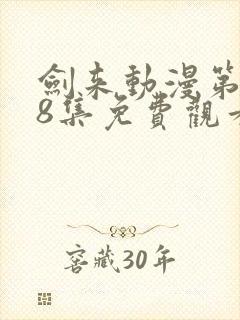 劍来動漫第
8集免費觀看
窖藏30年